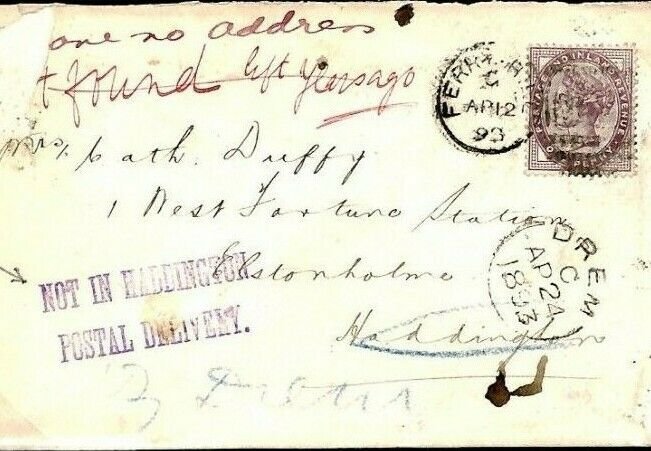 one no address
found left years ago
FERRYHILL
C
AP 12
93
POSTAGE AND INLAND REVENUE
Mrs. Cath. Duffy
1 West Fortune Station
Elstonholme
Haddington
DREM
C
AP 24
1893
NOT IN HADDINGTON
POSTAL DELIVERY.